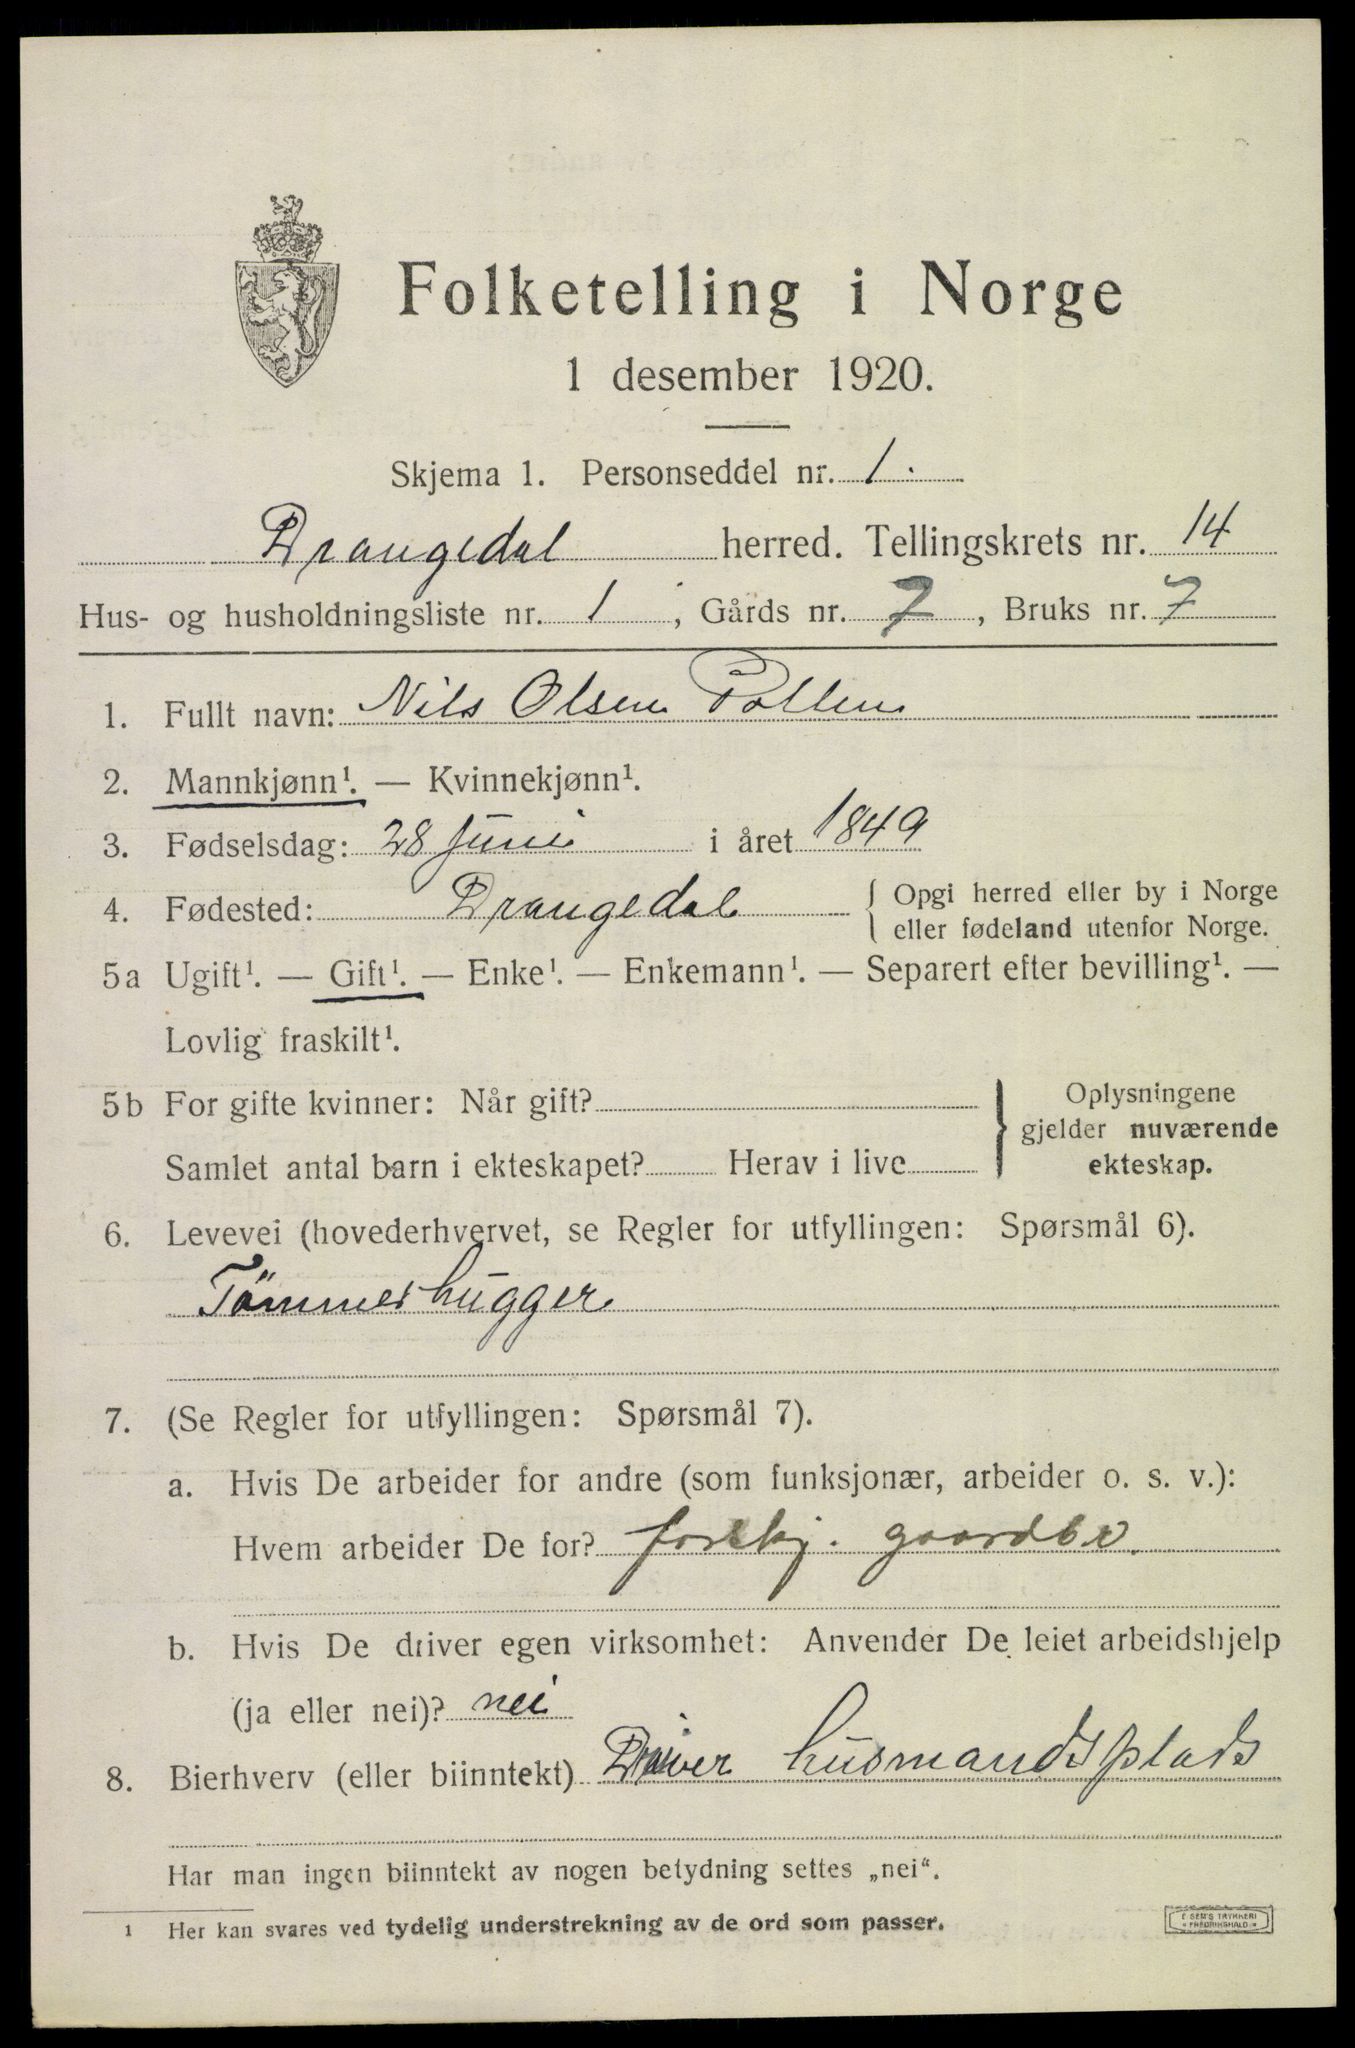 Folketelling i Norge
1 desember 1920.
Skjema 1. Personseddel nr. 1.
Drangedal herred. Tellingskrets nr. 14
Hus- og husholdningsliste nr. 1, Gårds nr. 7, Bruks nr. 7
1. Fullt navn: Nils Olsen Pollen
2. Mannkjønn¹. — Kvinnekjønn¹.
3. Fødselsdag: 28 Juni i året 1849
4. Fødested: Drangedal { Opgi herred eller by i Norge
eller fødeland utenfor Norge.
5a Ugift¹. — Gift¹. — Enke¹. — Enkemann¹. — Separert efter bevilling¹. —
Lovlig fraskilt¹.
5b For gifte kvinner: Når gift?
Samlet antal barn i ekteskapet? Herav i live
} Oplysningene
gjelder nuværende
ekteskap.
6. Levevei (hovederhvervet, se Regler for utfyllingen: Spørsmål 6).
Tömmerhugger
7. (Se Regler for utfyllingen: Spørsmål 7).
a. Hvis De arbeider for andre (som funksjonær, arbeider o. s. v.):
Hvem arbeider De for? forskj. gaardbr.
b. Hvis De driver egen virksomhet: Anvender De leiet arbeidshjelp
(ja eller nei)? nei
8. Bierhverv (eller biinntekt) Driver husmandsplads
Har man ingen biinntekt av nogen betydning settes „nei“.
1 Her kan svares ved tydelig understrekning av de ord som passer.
E SEM'S TRYKKERI
FREDRIKSHALD